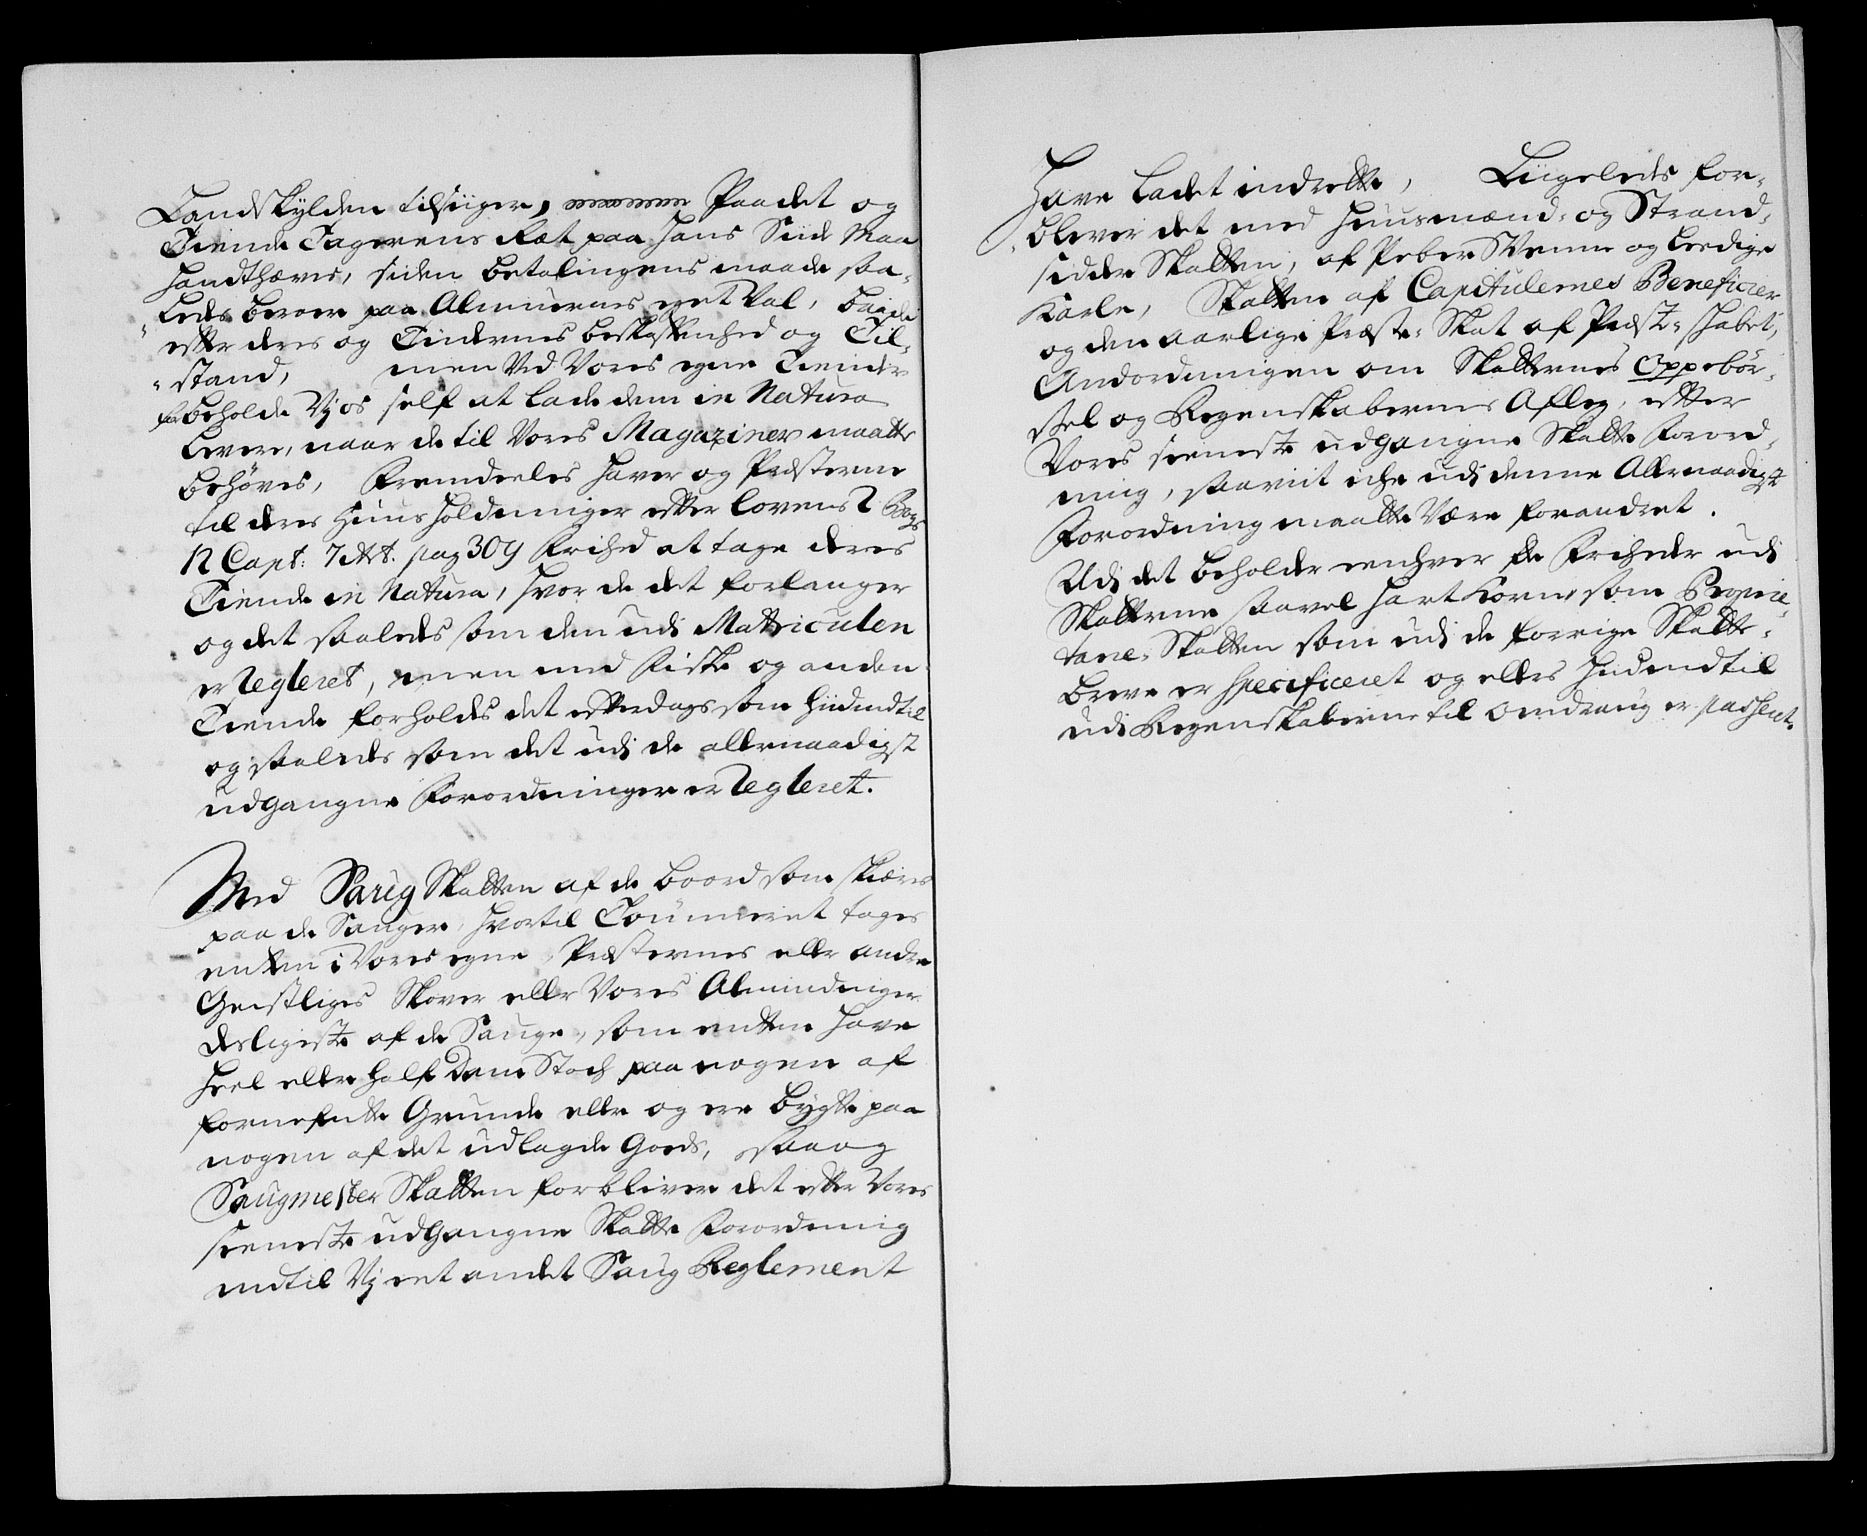 Landskylden tilsiiger, Paadet og
Tiende Tagerens Ræt paa hans Siide Maa
handthæves, siden betalingens maade saa-
leds beroer paa Almuens eget Val, baade
efter deres og Tiidernes beskaffenhed og Til-
stand, men Ved Vores egne Tiender
forbeholde Vj os self at lade dem in Natura
levere, naar de til Vores Magaziner maatte
behøves, Fremdeeles haver og Præsterne
til deres Huus holdninger efter lovens 2 Bogs
12 Capt: 7 Art. pag 309 Frihed at tage deres
Tiende in Natura, hvor de det forlanger
og det saaleds som den udi Matriculen
er Regleret, men med Fiske og anden
Tiende forholdes det efterdags som hiidindtil
og saaleds som det udi de allernaadigst
udgangne Forordninger er Regleret.
Med Saug Skatten af de boord som skiæres
paa de Sauger, hvortil Tømmeret tages
enten i Vores egne, Præsternes eller andre
Geistliges Skover eller Vores Almindinger
desligeste af de Sauge, som enten have
heel eller half Dam Stoch paa nogen af
fornefnte Grunde eller og ere bygte paa
nogen af det udlagde Gods, saa og
Saugmester Skatten forbliver det efter Vores
seeneste udgangne Skatte Forordning
indtil Vj eet andet Saug Reglement
Have ladet indrette, Liigeleds for-
bliver det med Huusmænd- og Strand-
sidder Skatten, af Peber Svenne og leedige
Karle, Skatten af Capitulernes Beneficier
og den aarlige Præste-Skat af Præste-skabet,
Andordningen om Skatternes Oppebør-
sel og Regenskabernes Afleg, efter
Vores seeneste udgangne Skatte Forord-
ning, saavit iche udi denne Allernaadigste
Forordning maatte Være forandret.
Udi det beholder eenhver de Friheder udi
Skatterne saavel Hart Korns som Proprie-
tarie-Skatten som udi de forrige Skatte-
breve er specificeret og ellers hidindtil
udi Regenskaberne til Omdrag er passeret.